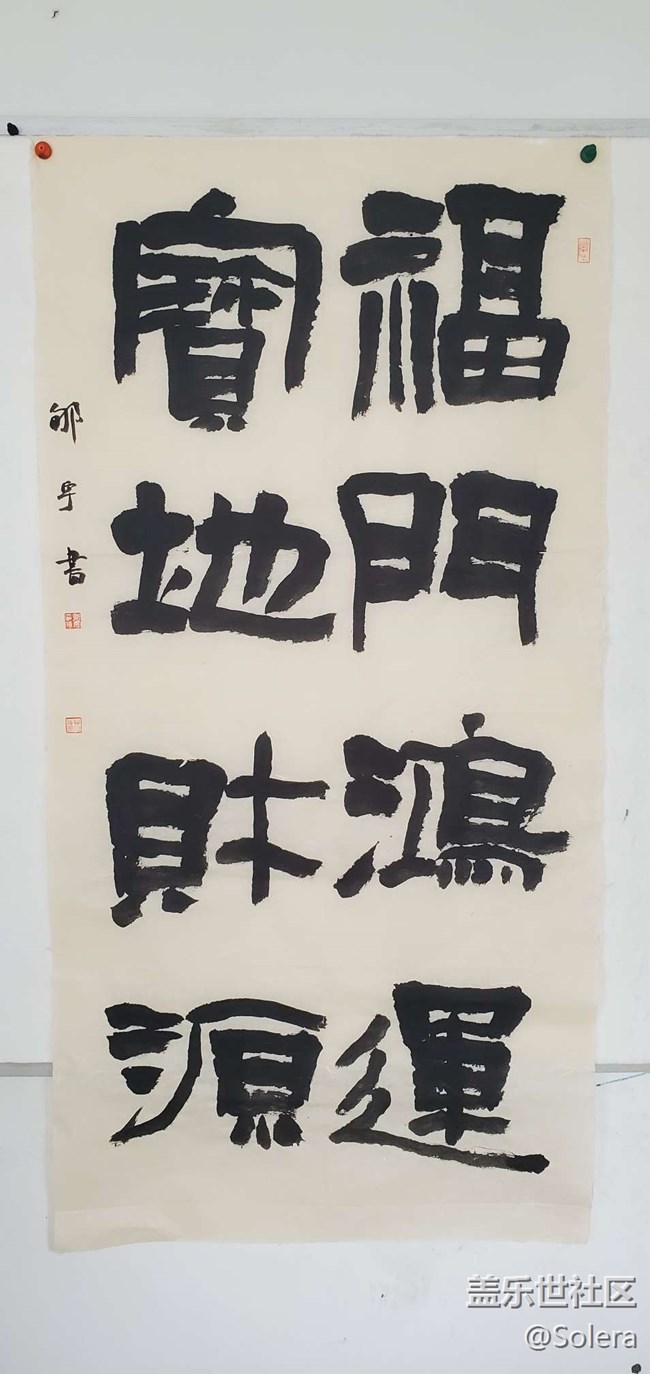 福門鴻運
寶地財源
邹宁書
盖乐世社区
@Solera